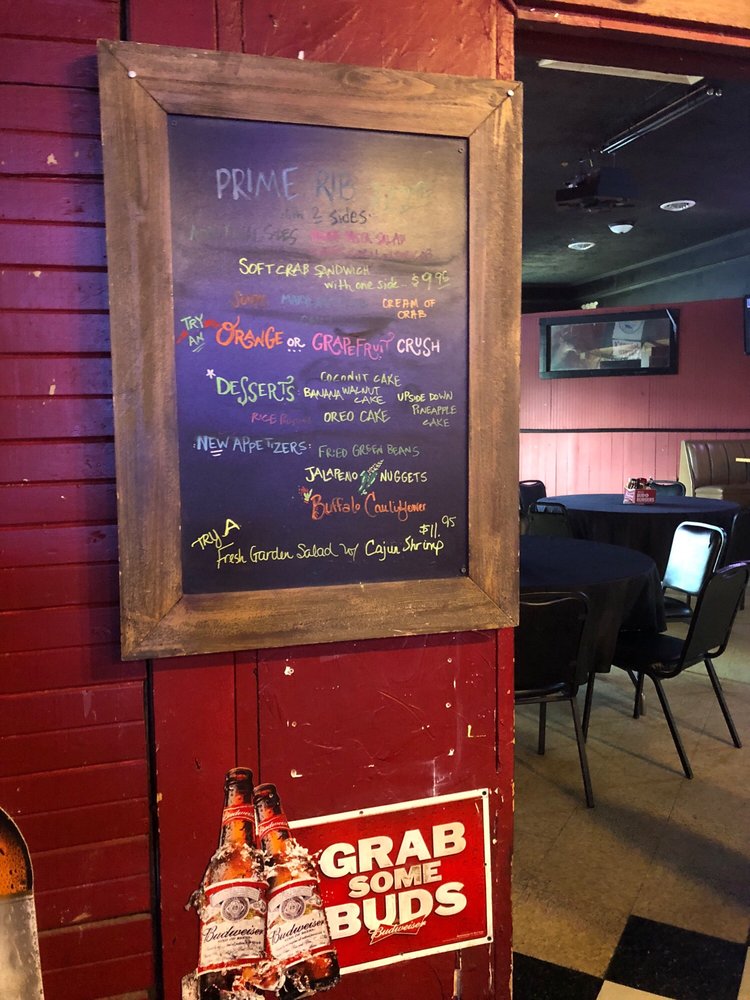 PRIME RIB
2 sides.
SIDES
SALAD
SOFT CRAB SANDWICH
with one side - $9.95
CREAM OF
CRAB
TRY
AN ORANGE OR GRAPEFRUIT CRUSH
*DESSERTS
COCONUT CAKE
BANANA WALNUT
CAKE
UPSIDE DOWN
PINEAPPLE
CAKE
RICE OREO CAKE
NEW APPETIZERS: FRIED GREEN BEANS
JALAPENO NUGGETS
Buffalo Cauliflower
TRY A
Fresh Garden Salad w/ Cajun Shrimp $11.95
GRAB
SOME
BUDS
Budweiser
Budweiser
Budweiser